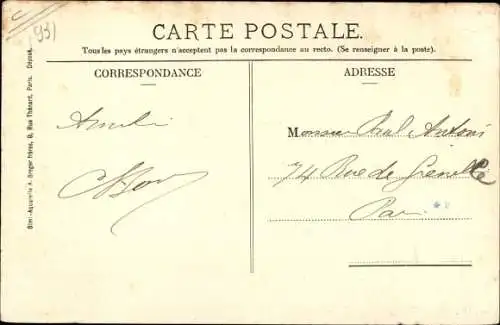 931
CARTE POSTALE.
Tous les pays étrangers n'acceptent pas la correspondance au recto. (Se renseigner à la poste).
CORRESPONDANCE
ADRESSE
Monsieur Antoni
74 Rue de Grenelle
Paris
Simi-Aquarelle A. Breger frères, 9, Rue Thénard, Paris. Déposé.